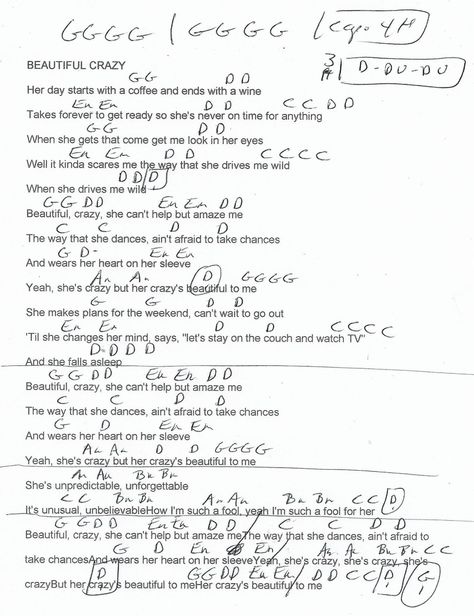 G G G G | G G G G | Capo 4th
3 fr D - DU - DU
BEAUTIFUL CRAZY
G G D D
Her day starts with a coffee and ends with a wine
Em Em D D C C D D
Takes forever to get ready so she's never on time for anything
G G D D
When she gets that come get me look in her eyes
Em Em D D C C C C
Well it kinda scares me the way that she drives me wild
D D D
When she drives me wild
G G D D Em Em D D
Beautiful, crazy, she can't help but amaze me
C C D D
The way that she dances, ain't afraid to take chances
G D- Em Em
And wears her heart on her sleeve
Am Am D G G G G
Yeah, she's crazy but her crazy's beautiful to me
G G D D
She makes plans for the weekend, can't wait to go out
Em Em D D C C C C
'Til she changes her mind, says, "let's stay on the couch and watch TV"
D-D D D
And she falls asleep
G G D D Em Em D D
Beautiful, crazy, she can't help but amaze me
C C D D
The way that she dances, ain't afraid to take chances
G D Em Em
And wears her heart on her sleeve
Am Am D D G G G G
Yeah, she's crazy but her crazy's beautiful to me
Am Am Bm Bm
She's unpredictable, unforgettable
C C Bm Bm Am Am Bm Bm C C D
It's unusual, unbelievableHow I'm such a fool, yeah I'm such a fool for her
G G D D Em Em D D C C D D
Beautiful, crazy, she can't help but amaze me/The way that she dances, ain't afraid to
G D Em Em/ Am Am Bm Bm C C
take chancesAnd wears her heart on her sleeveYeah, she's crazy, she's crazy, she's
D G G D D Em Em / D D C C D G
crazyBut her crazy's beautiful to meHer crazy's beautiful to me